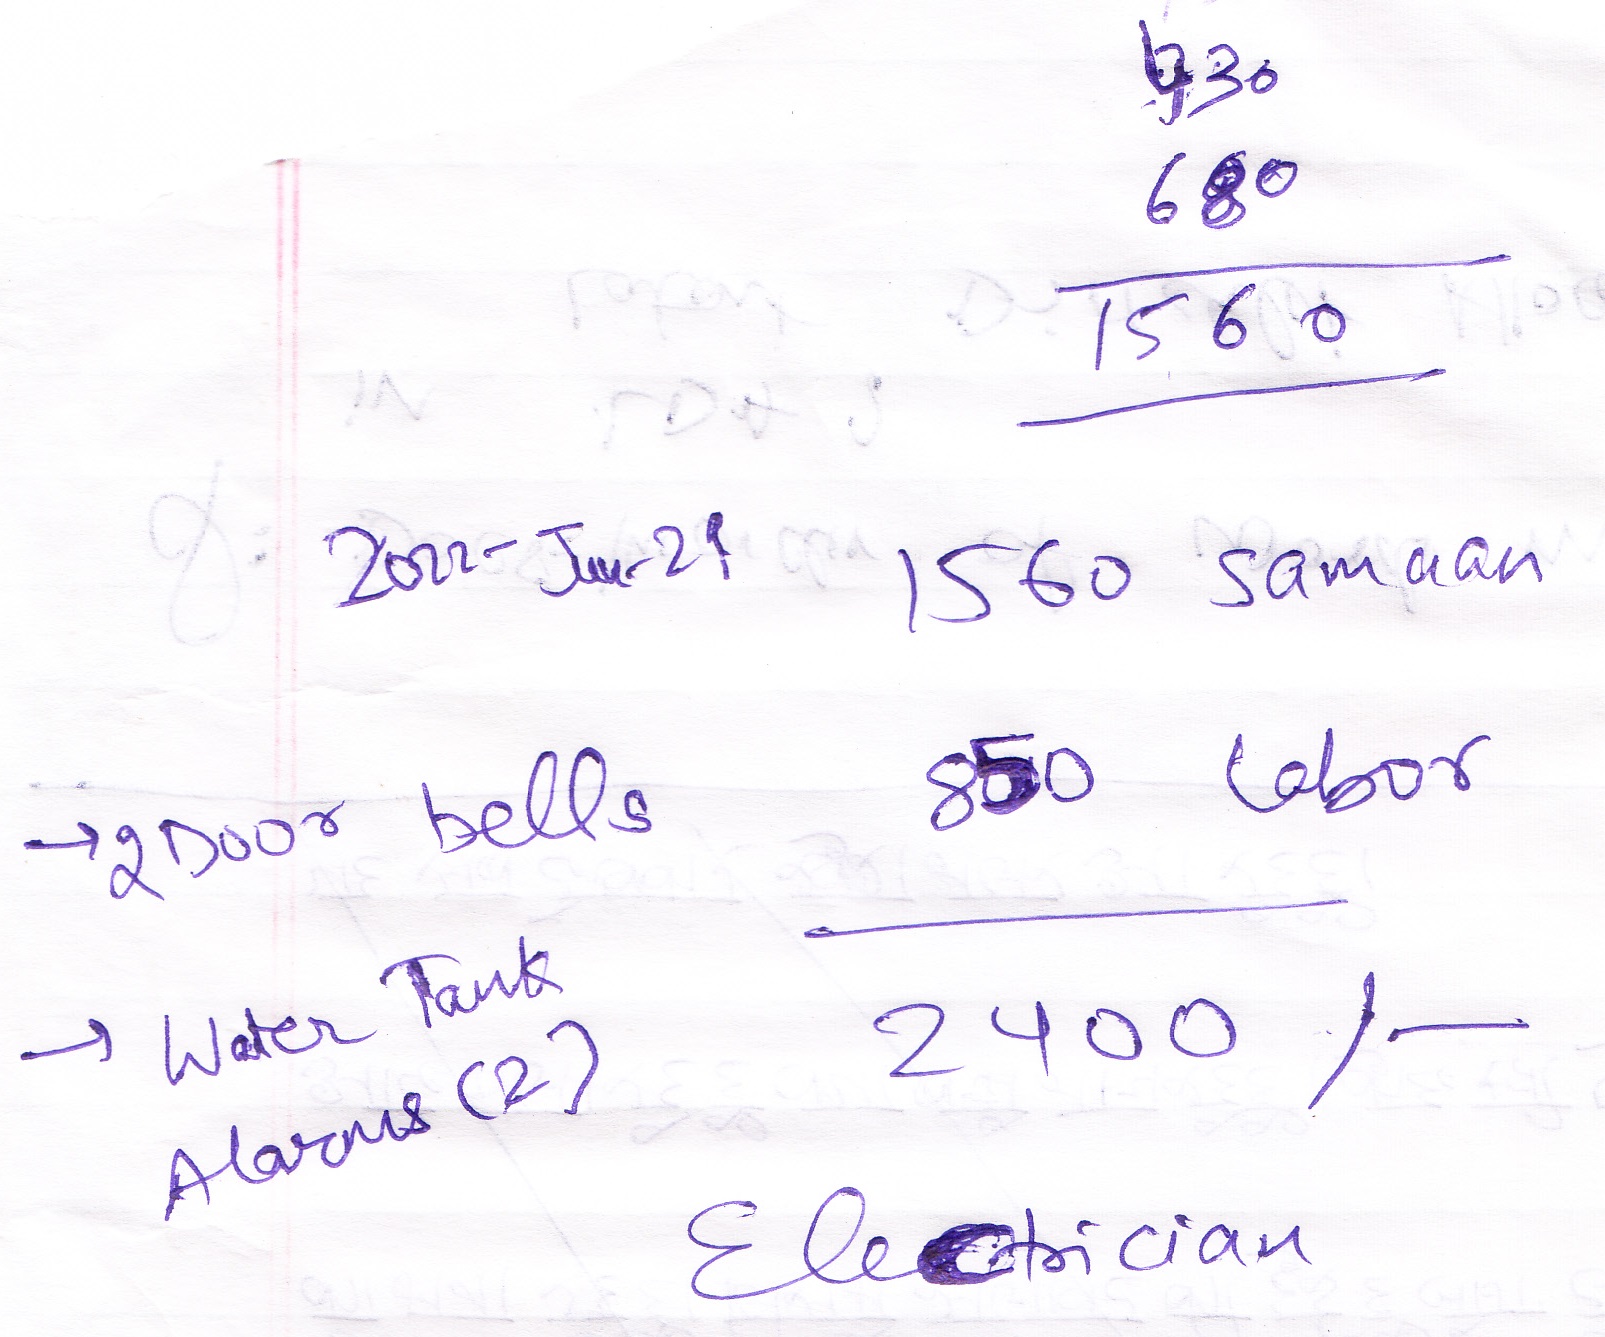 680
1560
2022-Jun-29 1560 Samaan
→ 2 Door bells 850 Labor
→ Water Tank
Alarms (2) 2400 /-
Electrician